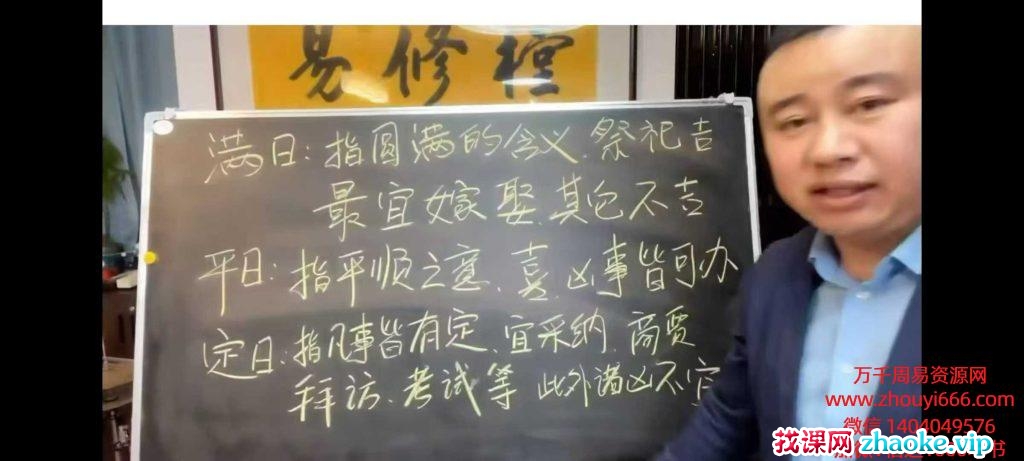 易修控
满日：指圆满的含义、祭祀吉
最宜嫁娶、其它不吉
平日：指平顺之意、喜、凶事皆可办
定日：指凡事皆有定、宜采纳、商贾
拜访、考试等 此外诸凶不宜
万千周易资源网
www.zhouyi666.com
微信 1404049576
找课网 zhaoke.vip
书